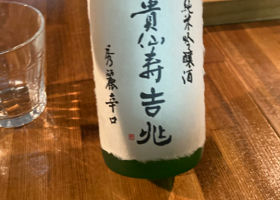 純米吟醸酒
貴仙寿吉兆
秀麗辛口